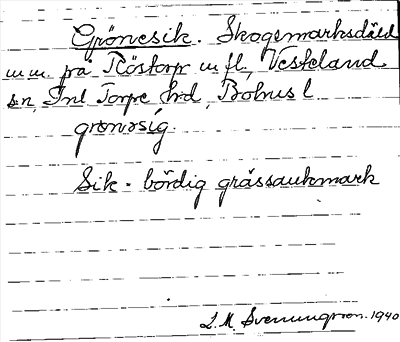 Grönesik. Skogsmarksdäld
m.m. på Röstorp m fl., Vesteland
sn, Inl Torpe hrd, Bohus l.
grønəsig.
Sik - bördig gräsauhmark
L. M. Svenungsson. 1940